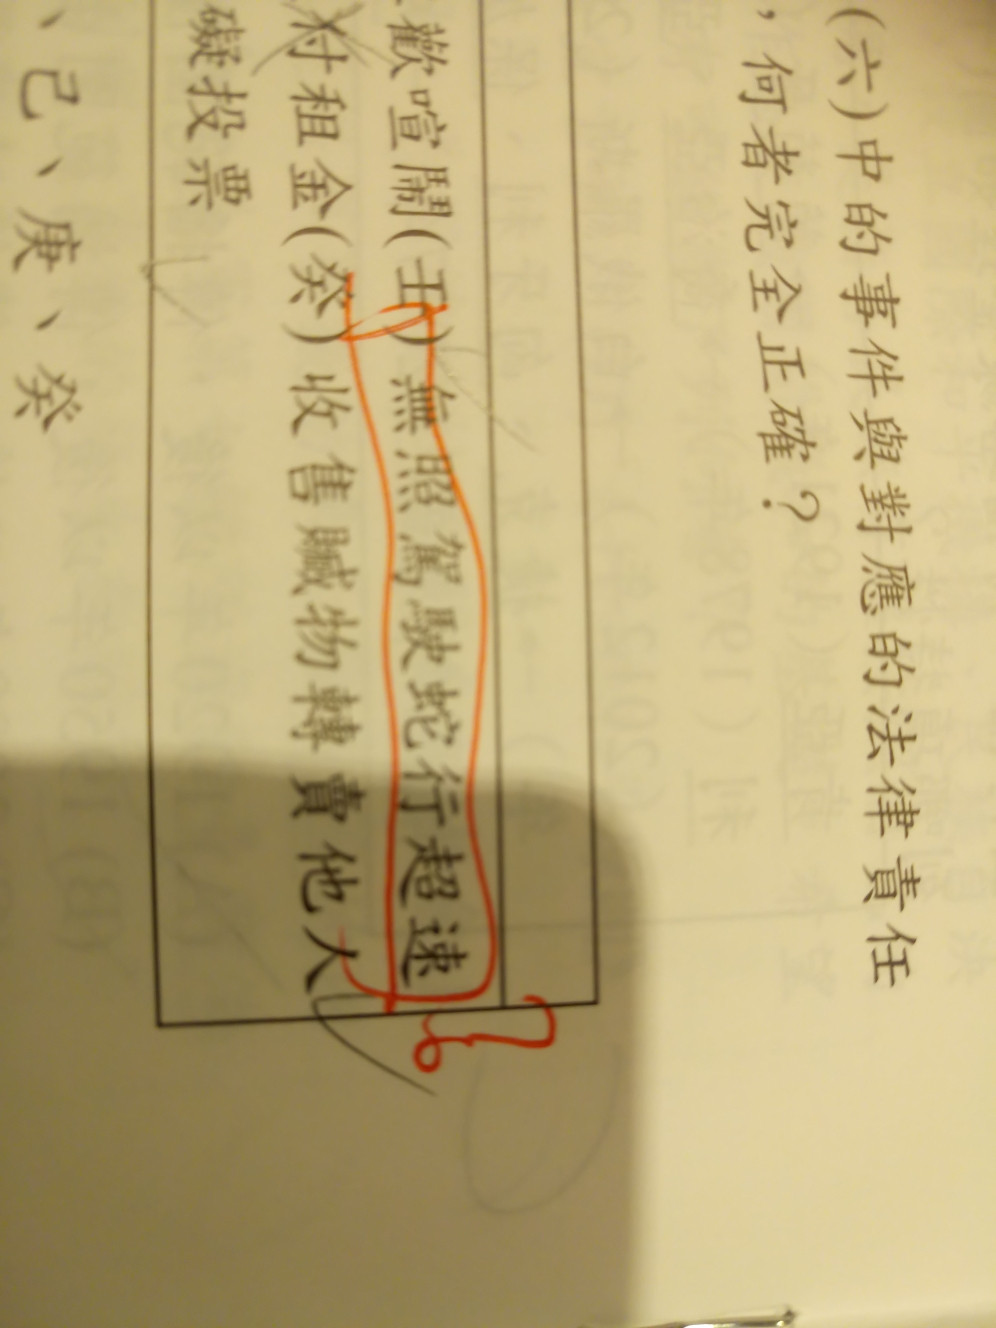 (六)中的事件與對應的法律責任
，何者完全正確？
歡喧鬧(壬)無照駕駛蛇行超速
租金(癸)收售贓物轉賣他人
礙投票
、己、庚、癸